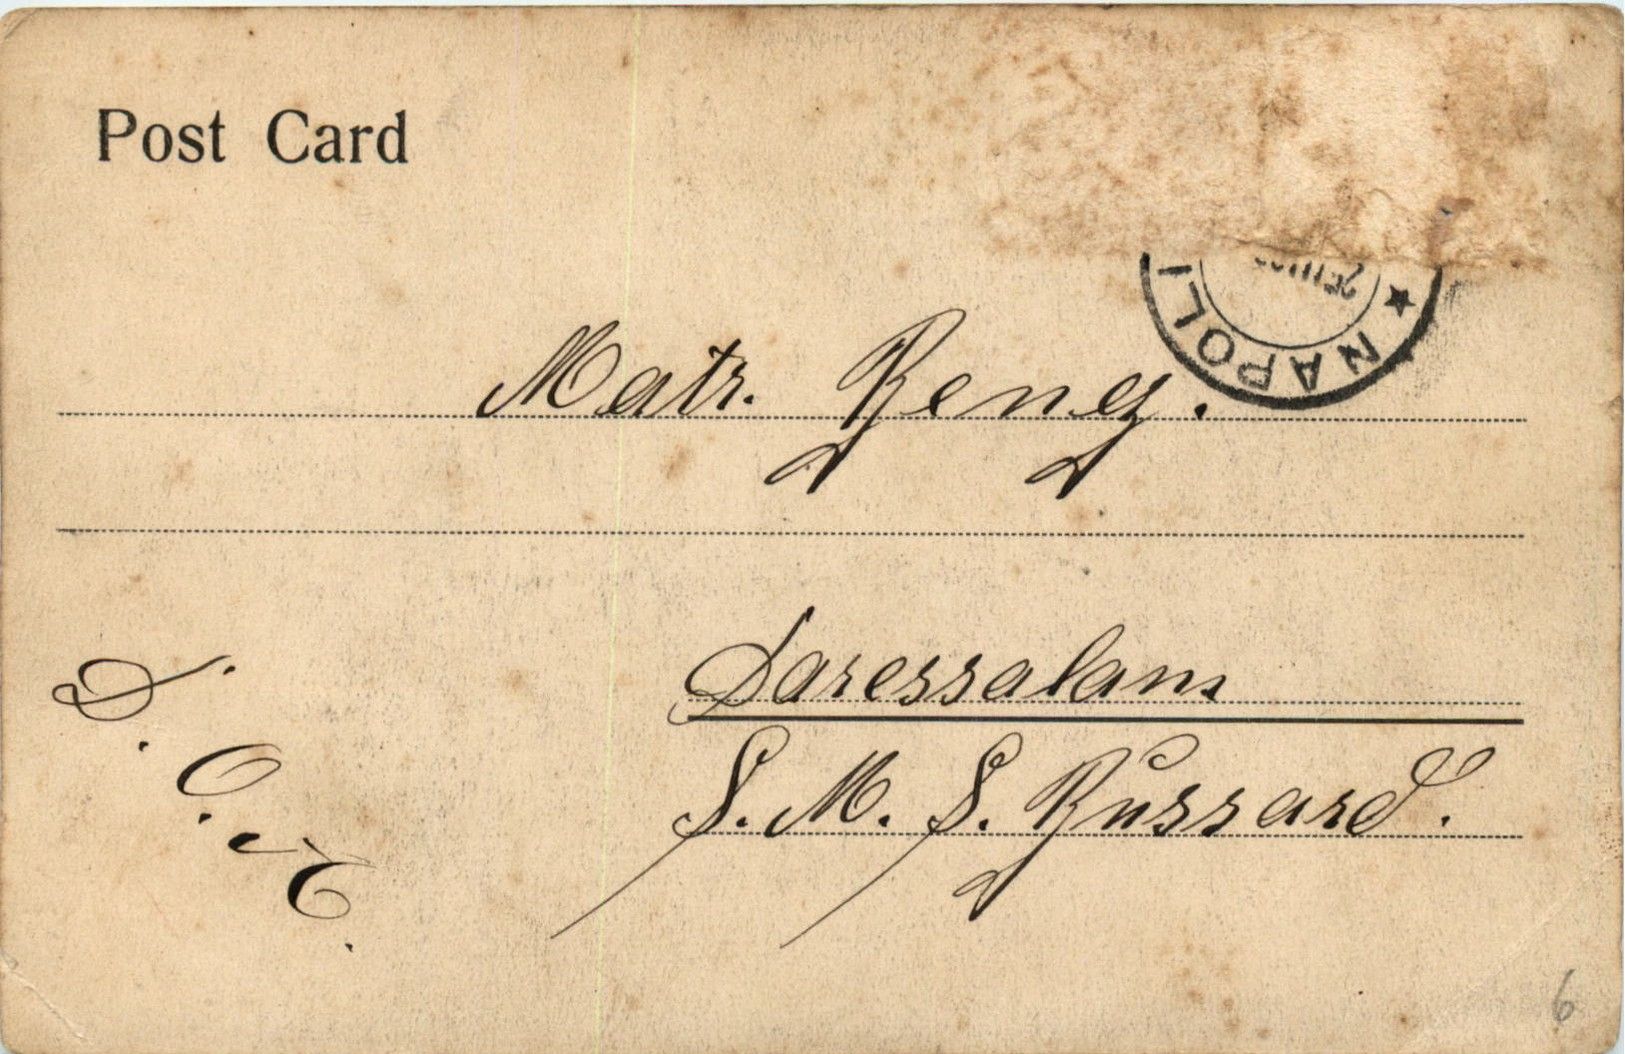 Post Card
NAPOLI
Matr. Benz.
Daressalam
S. M. S. Bussard.
D. O. A.
6